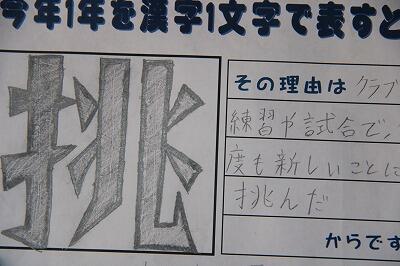 今年1年を漢字1文字で表すと
挑
その理由は クラブ
練習や試合で、
度も新しいことに
挑んだ
からです